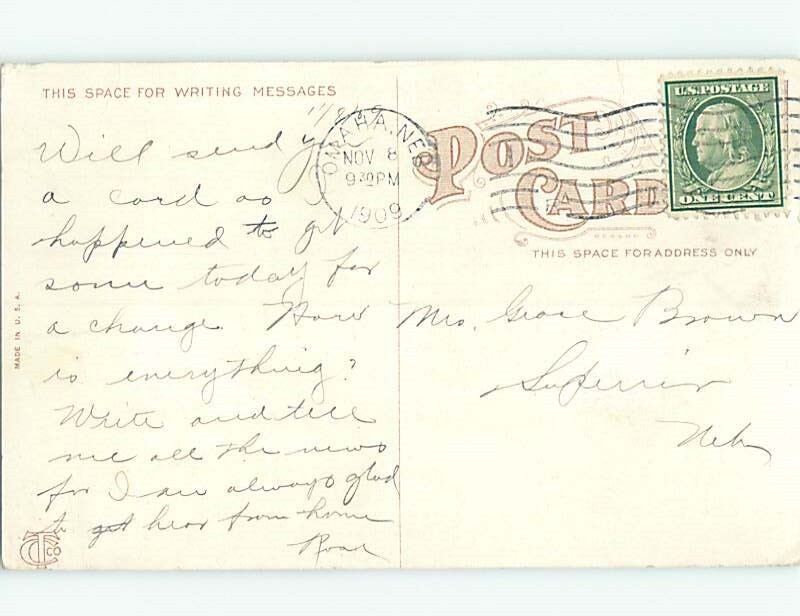 THIS SPACE FOR WRITING MESSAGES
11/8/09
Will send you
a card as I
happened to get
some today for
a change. How
is everything?
Write and tell
me all the news
for I am always glad
to get hear from home
Rose
MADE IN U. S. A.
OMAHA, NEB
NOV 8
930 PM
1909
POST
CARD
THIS SPACE FOR ADDRESS ONLY
U.S. POSTAGE
ONE CENT
Mrs. Grace Brown
Superior
Nebr